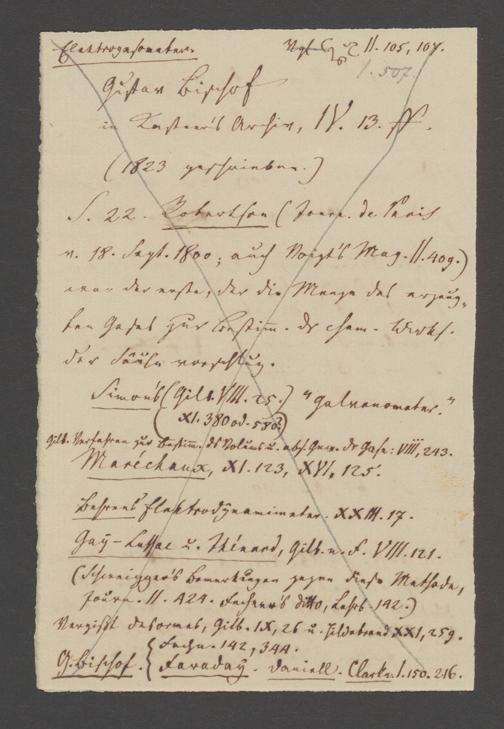 Elektrogasometer. Vgl. II. 105, 107.
I. 507.
Gustav Bischof
in Kastner's Archiv, IV. 13. ff.
(1823 geschrieben.)
S. 22. Robertson (Journ. de Paris
v. 18. Sept. 1800; auch Voigt's Mag. II. 409.)
war der erste, der die Menge des erzeug-
ten Gases zur Bestimm. dr chem. Wirks.
der Säule vorschlug.
Simon's (Gilb. VIII. 25.) "Galvanometer."
(XI. 380 od. 580?)
Gilb. Verfahren zur Bestimm. ds Volums u. abs. Gew. dr Gase: VIII, 243.
Maréchaux, XI. 123, XVI, 125.
Behrens Elektrodynamimeter. XXIII. 17.
Gay-Lussac u. Thénard, Gilb. n. F. VIII. 121.
(Schweigger's Bemerkungen gegen diese Methode,
Journ. II. 424. Fechner's ditto, Lehrb. 142.)
Vergißt Desormes, Gilb. IX, 26 u. Hildebrand XXI, 259.
Fechn. 142, 344.
G. Bischof. Faraday. Daniell. Clarke. I. 150. 216.